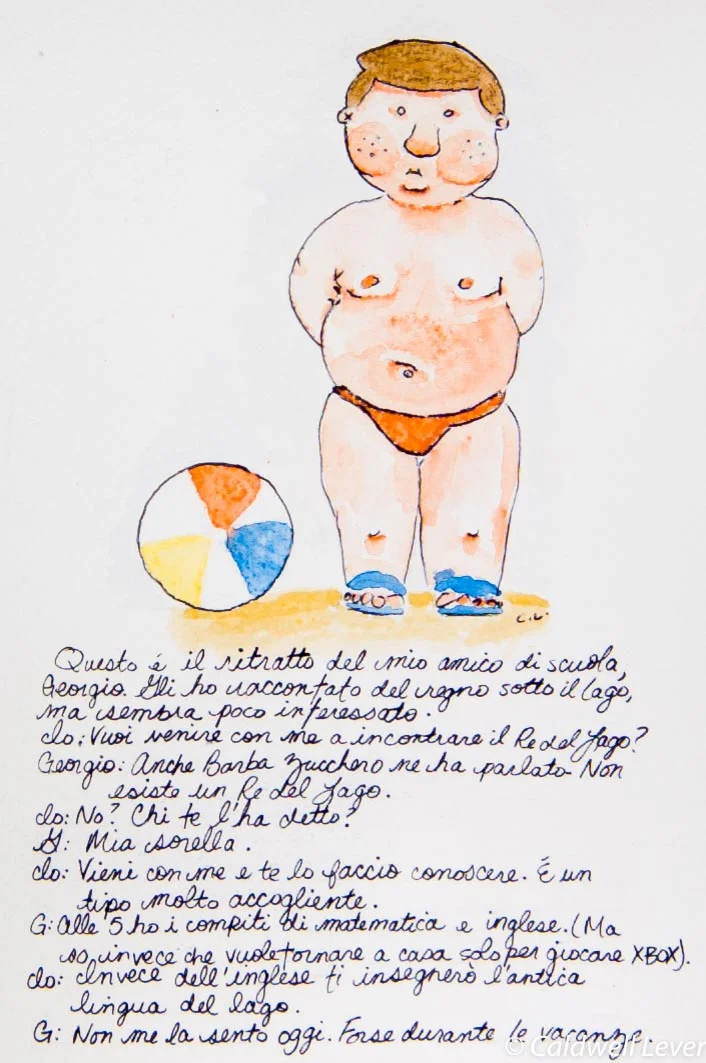 C.L.
Questo é il ritratto del mio amico di scuola,
Georgio. Gli ho raccontato del regno sotto il lago,
ma sembra poco interessato.
Io: Vuoi venire con me a incontrare il Re del Lago?
Georgio: Anche Barba Zucchero ne ha parlato. Non
esiste un Re del Lago.
Io: No? Chi te l'ha detto?
G: Mia sorella.
Io: Vieni con me e te lo faccio conoscere. É un
tipo molto accogliente.
G: Alle 5 ho i compiti di matematica e inglese. (Ma
so, invece che vuole tornare a casa solo per giocare XBOX).
Io: Invece dell'inglese ti insegnerò l'antica
lingua del lago.
G: Non me la sento oggi. Forse durante le vacanze.
© Caldwell Lever